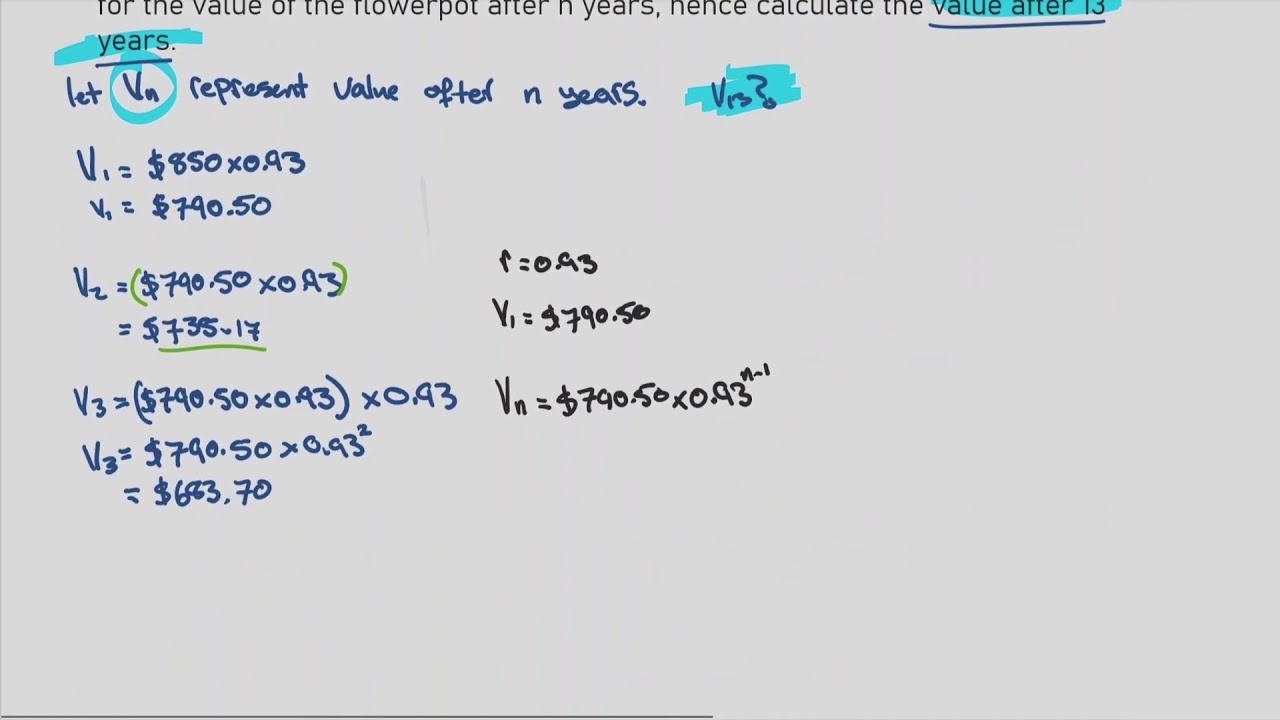 for the value of the flowerpot after n years, hence calculate the value after 13
years.
let Vn represent value after n years. V13?
V1 = $850×0.93
V1 = $790.50
V2 = ($790.50×0.93)
= $735.17
V3 = ($790.50×0.93) ×0.93
V3 = $790.50×0.93²
= $683.70
r=0.93
V1 = $790.50
Vn = $790.50×0.93ⁿ⁻¹